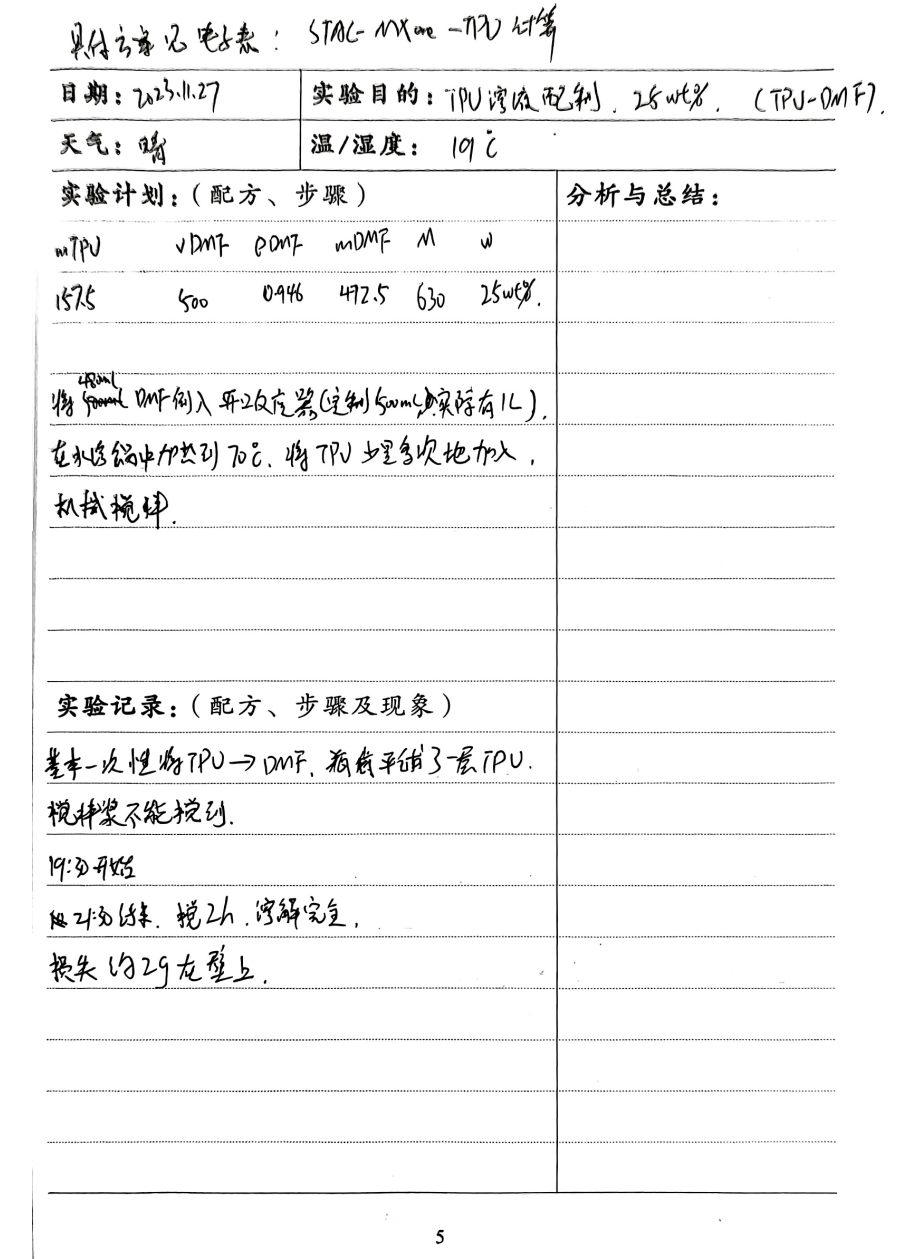 具体方案见电子表：STAC-MXene-TPU计算
日期：2023.11.27
实验目的：TPU溶液配制．25wt%．（TPU-DMF）．
天气：晴
温/湿度：19℃
实验计划：（配方、步骤）
分析与总结：
mTPU vDMF ρDMF mDMF M w
157.5 500 0.946 472.5 630 25wt%.
480ml
将 DMF倒入开口反应器(定制500mL,实际有1L).
在水浴锅中加热到70℃．将TPU少量多次地加入，
机械搅拌．
实验记录：（配方、步骤及现象）
基本一次性将TPU→DMF．瓶底平铺了一层TPU．
搅拌桨不能搅到．
19:30开始
21:30结束．搅2h．溶解完全．
损失约2g在壁上．
5